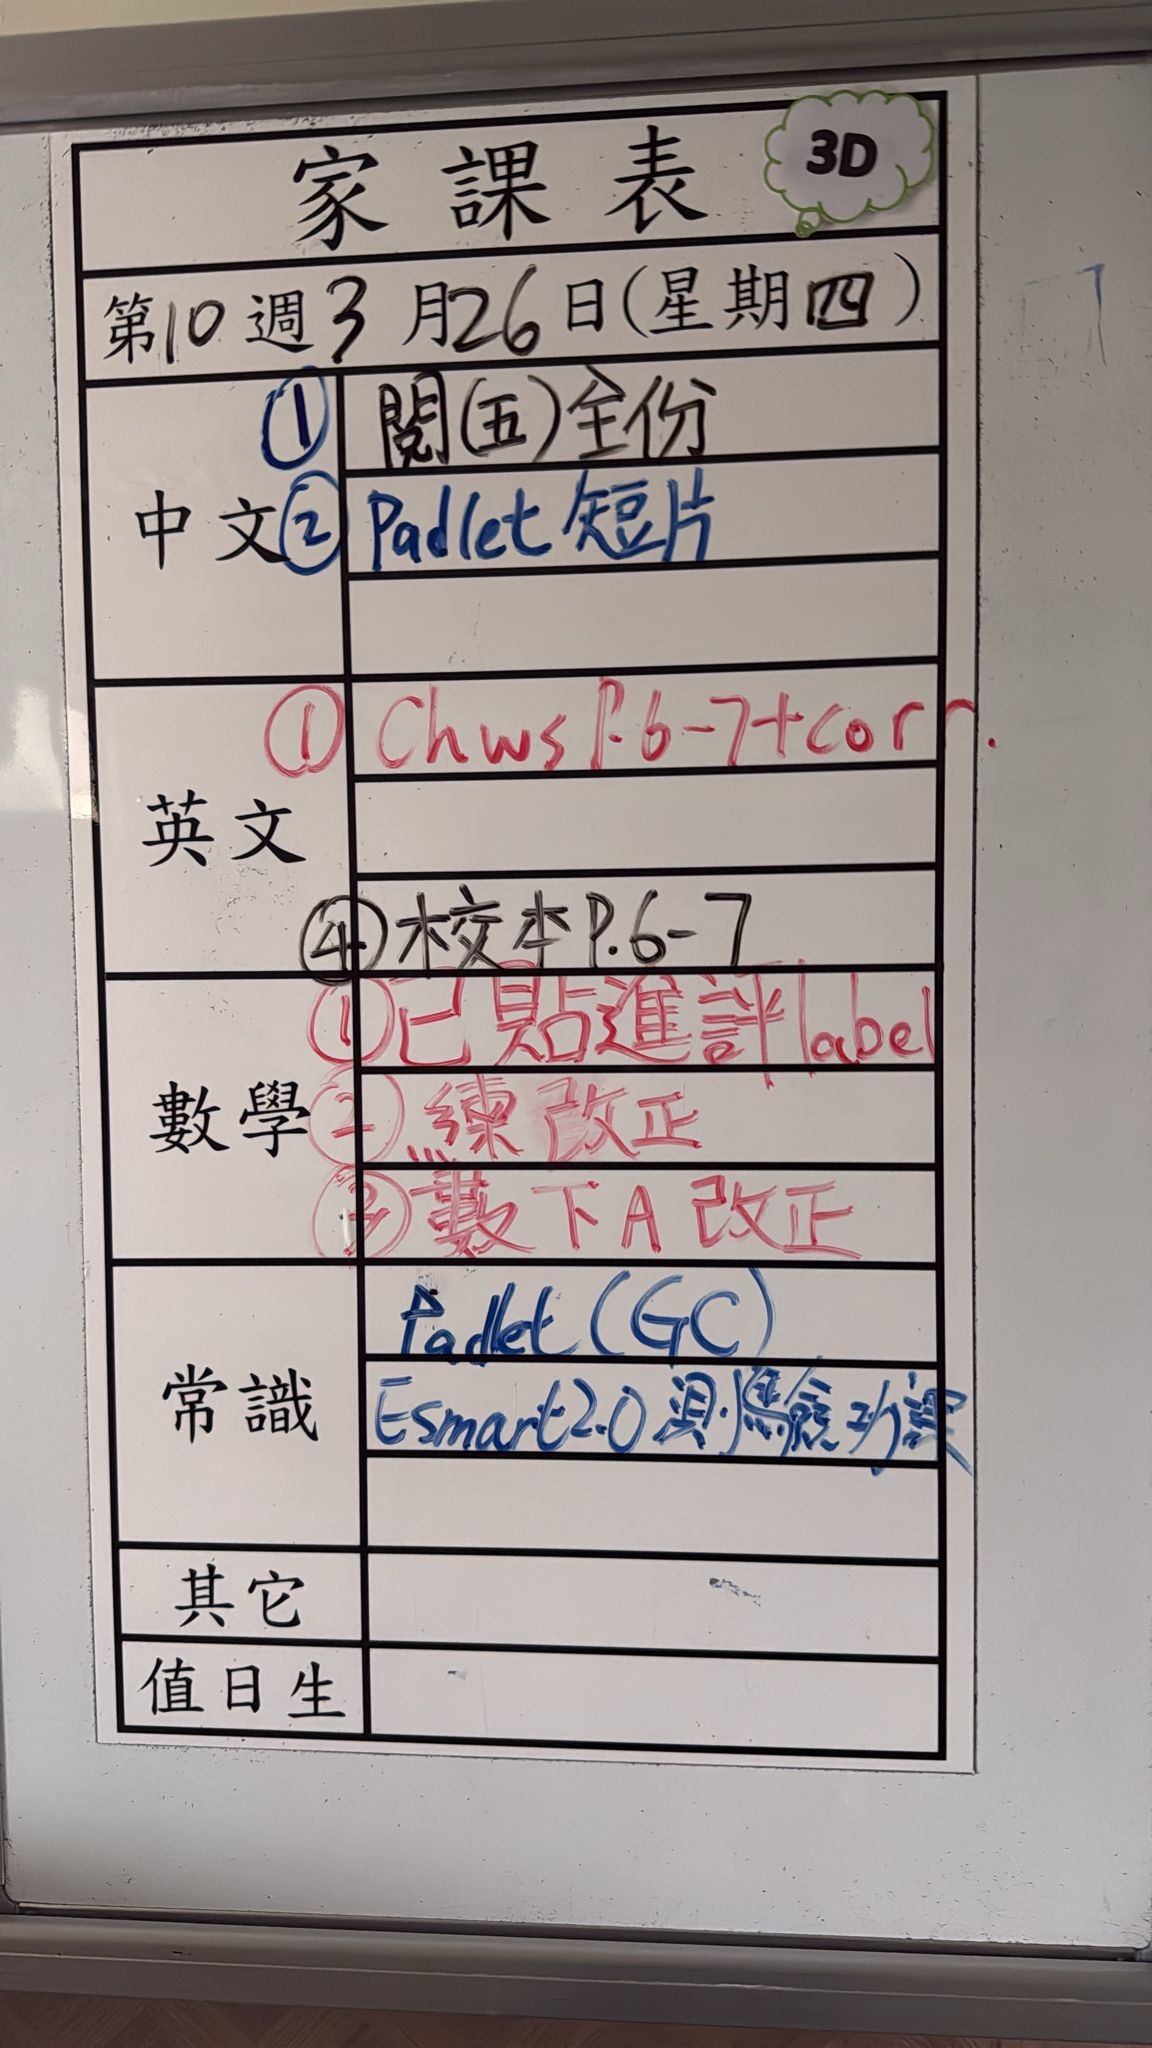 家課表 3D
第10週3月26日(星期四)
中文
① 閱(五)全份
② Padlet 短片
英文
① Chws P.6-7+corr.
數學
④ 校本P.6-7
① 已貼進評label
② 練改正
③ 數下A改正
常識
Padlet (GC)
Esmart2.0 測、驗功課
其它
值日生